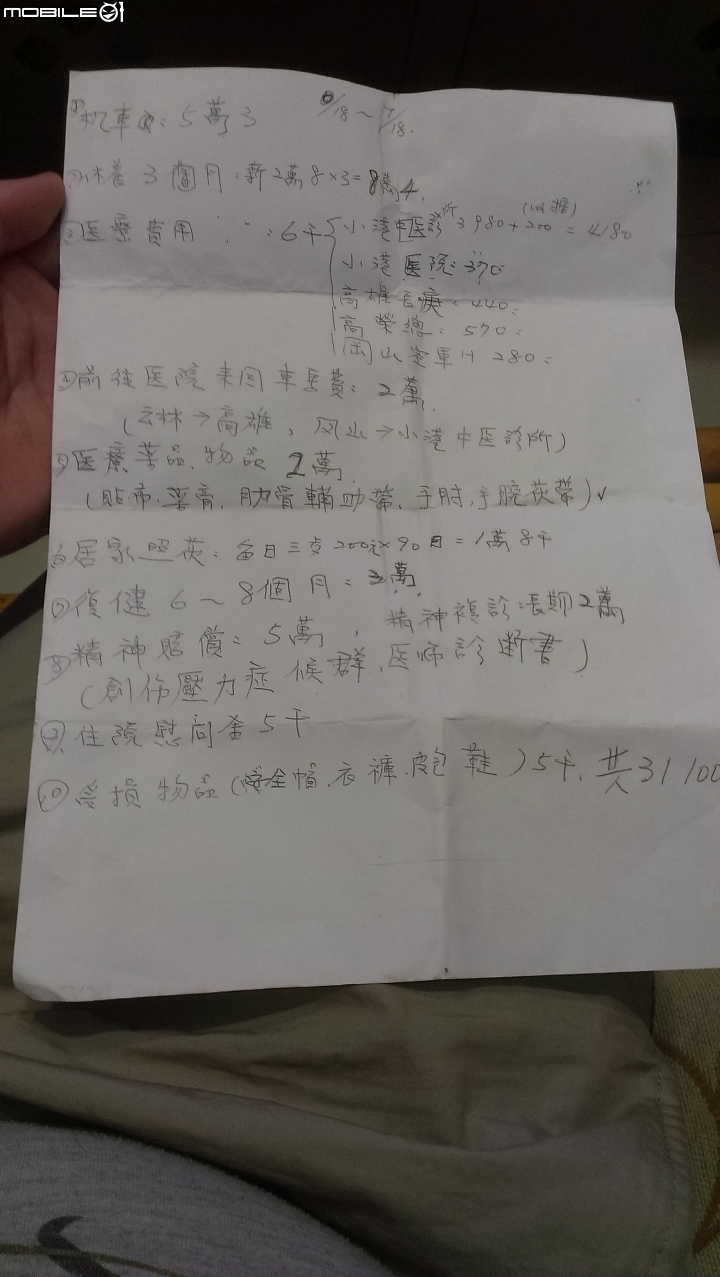 MOBILE01
①机車: 5萬3 6/18~7/18.
②休養3個月:薪2萬8×3=8萬4.
③医療費用 : 6千 小港中医診所 3980+200=4180
小港医院:370
高雄長庚:440:
高榮總:570:
岡山空軍H 280:
④前往医院来回車馬費:2萬.
(云林→高雄,岡山→小港中医診所)
⑤医療葉品、物品 2萬
(貼布、葯膏、肋骨輔助帶、手肘,手腕护帶)✓
⑥居家照护:每日三支200元×90日=1萬8千
⑦復健6~8個月:3萬
⑧精神賠償:5萬, 精神複診:長期2萬
(創伤壓力症候群,医师診断書)
⑨住院慰问金5千
⑩受損物品(安全帽、衣褲、皮包、鞋)5千,共31100